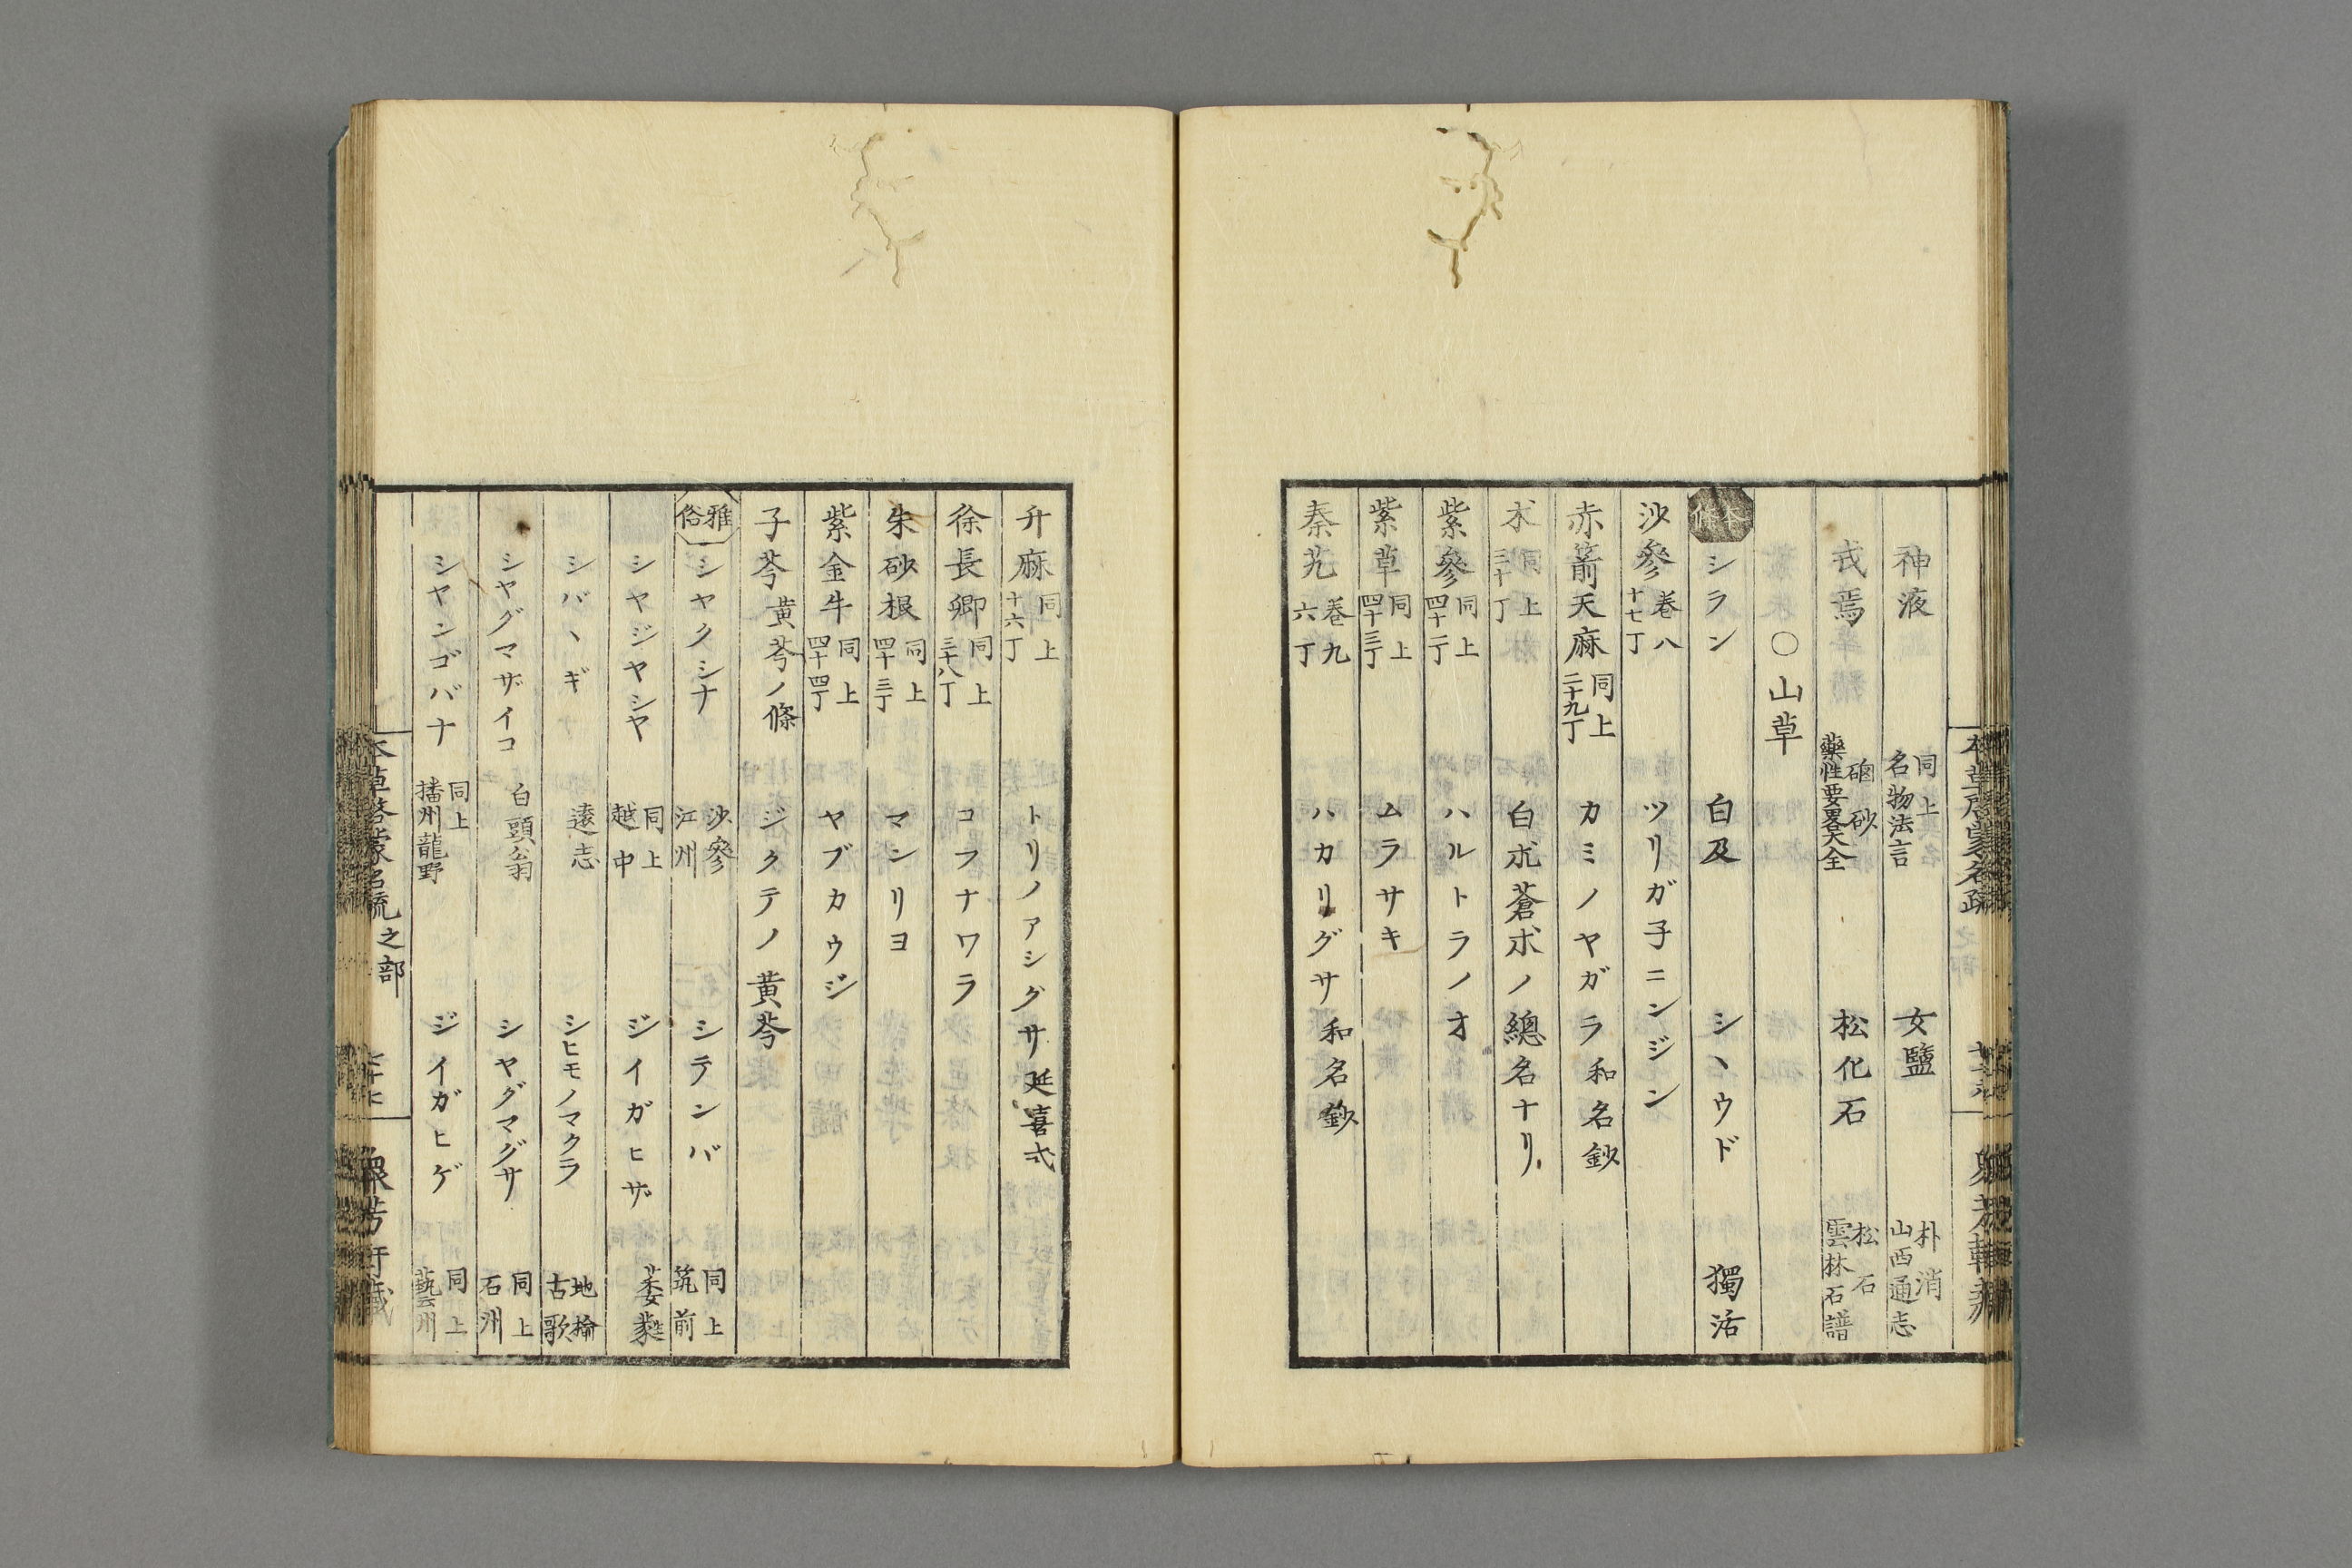 神液 同上 名物法言 女鹽 朴消 山西通志
戎焉 磠砂 藥性要畧大全 松化石 松石 雲林石譜
○山草
シラン 白及 シヽウド 獨活
沙參 卷八 十七丁 ツリガ子ニンジン
赤箭天麻 同上 二十九丁 カミノヤガラ 和名鈔
朮 同上 三十丁 白朮蒼朮ノ總名ナリ
紫參 同上 四十二丁 ハルトラノオ
紫草 同上 四十三丁 ムラサキ
秦艽 卷九 六丁 ハカリグサ 和名鈔
升麻 同上 十六丁 トリノアシグサ 延喜式
徐長卿 同上 三十八丁 コフナワラ
朱砂根 同上 四十三丁 マンリヨ
紫金牛 同上 四十四丁 ヤブカウジ
子芩 黃芩ノ條 ジクテノ黃芩
雅俗 シヤクシナ 沙參 江州 シテンバ 同上 筑前
シヤジヤシヤ 同上 越中 ジイガヒザ 萎蕤
シバヽギ 遠志 シヒモノマクラ 地楡 古歌
シヤグマザイコ 白頭翁 シヤグマグサ 同上 石州
シヤンゴバナ 同上 播州龍野 ジイガヒゲ 同上 藝州
本草啓蒙名疏 之部